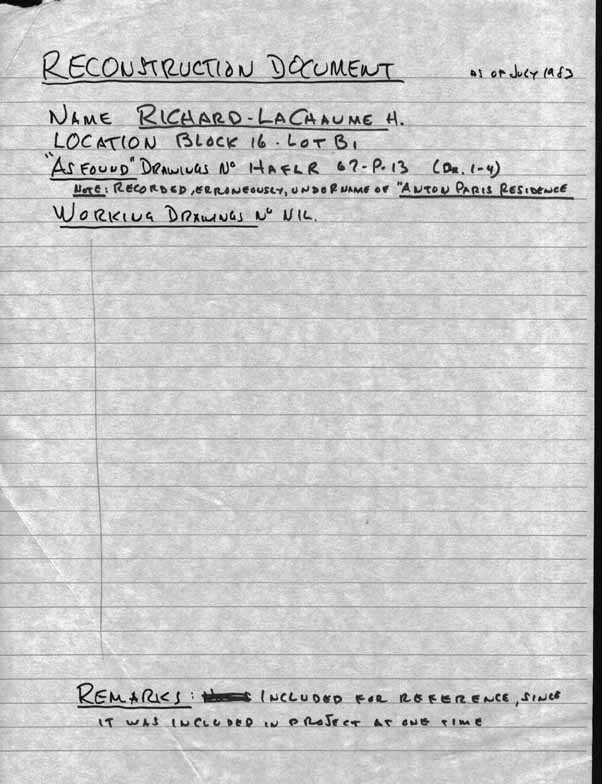 RECONSTRUCTION DOCUMENT
AS OF JULY 1983
NAME RICHARD-LACHAUME H.
LOCATION BLOCK 16 · LOT B1
"AS FOUND" DRAWINGS No HAFLR 67-P-13 (DR. 1-4)
NOTE: RECORDED, ERRONEOUSLY, UNDER NAME OF "ANTON PARIS RESIDENCE
WORKING DRAWINGS No NIL.
REMARKS: INCLUDED FOR REFERENCE, SINCE
IT WAS INCLUDED IN PROJECT AT ONE TIME